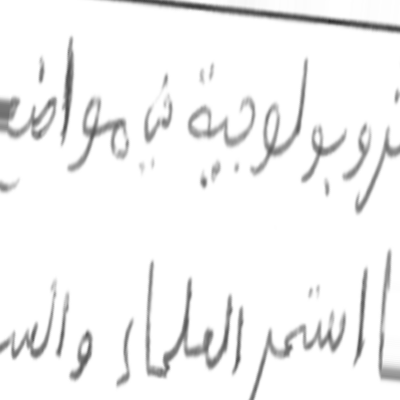 نروبولوجية في مواضيع
ا استمر العلماء والعد